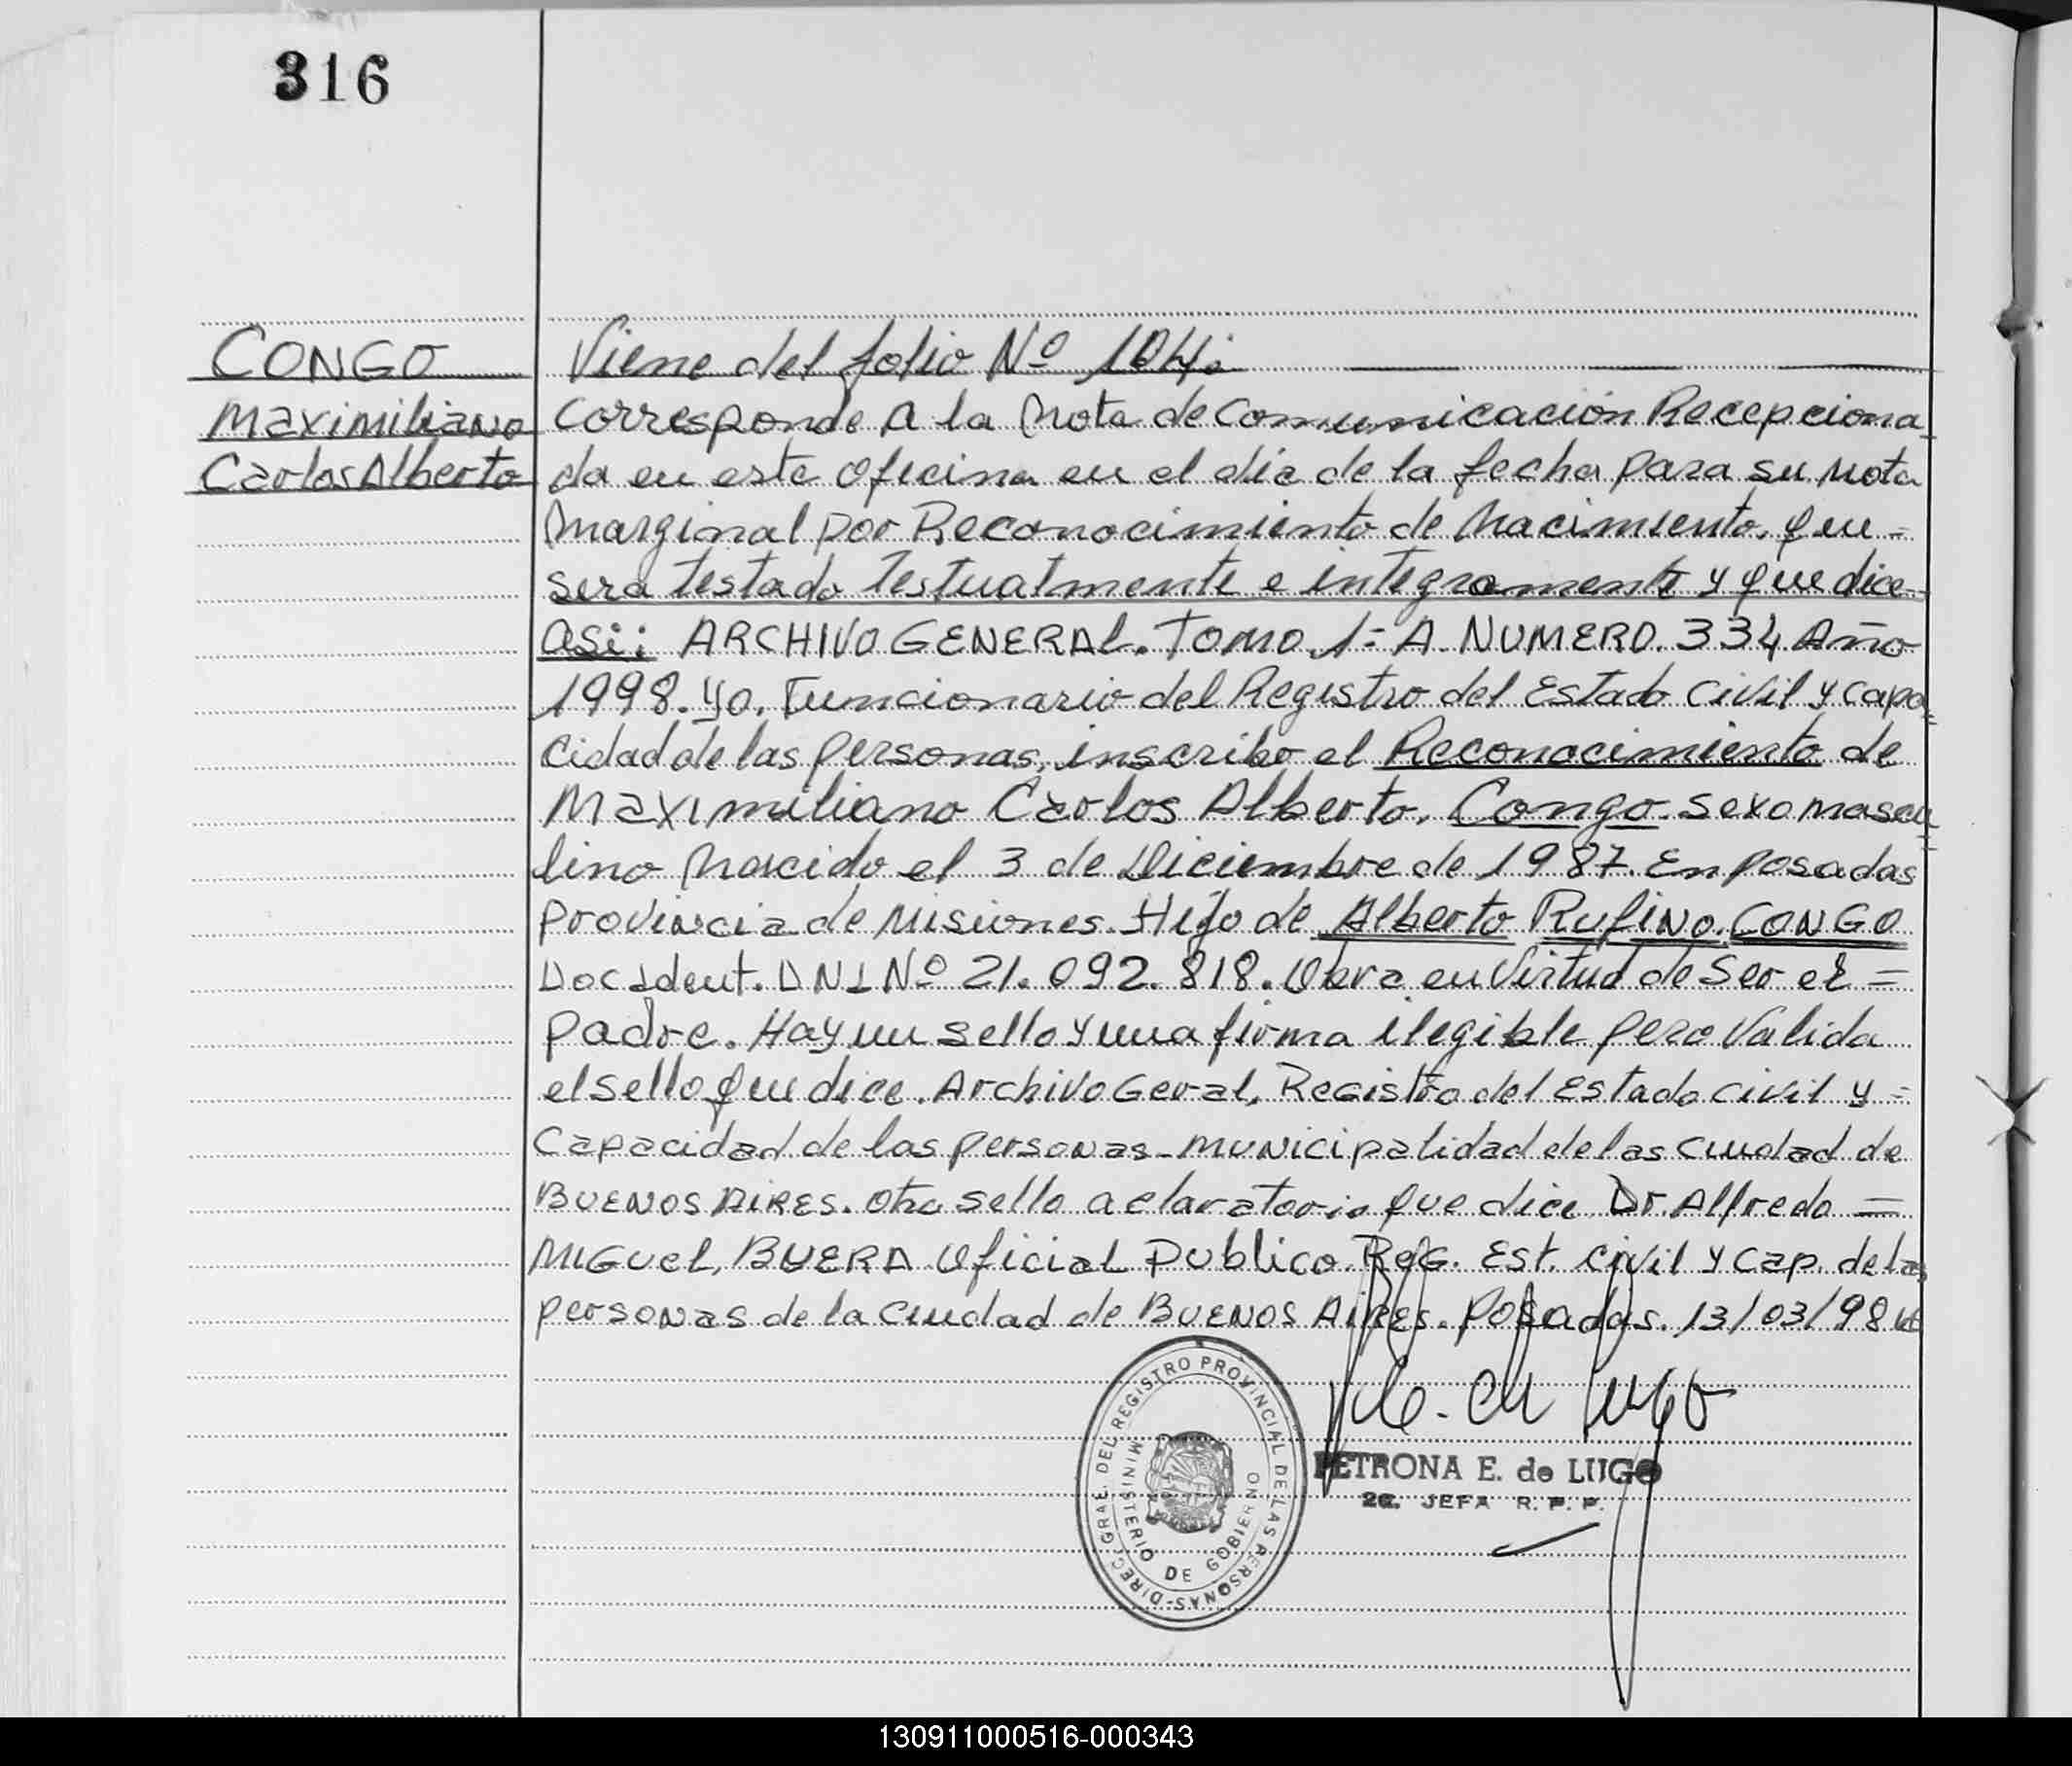 316
CONGO
Maximiliano
Carlos Alberto
Viene del folio Nº 104:
Corresponde a la Nota de Comunicación Recepciona-
da en este Oficina en el dia de la fecha para su nota
Marginal por Reconocimiento de Nacimiento, que =
sera testado Testualmente e integramente y que dice
asi: ARCHIVO GENERAL. TOMO 1= A. NUMERO. 334 Año
1998. Yo. Funcionario del Registro del Estado Civil y Capa=
cidad de las personas, inscribo el Reconocimiento de
Maximiliano Carlos Alberto. Congo. sexo mascu=
lino Nacido el 3 de Diciembre de 1987. En Posadas
Provincia de Misiones. Hijo de Alberto Rufino. CONGO
Doc Ident. DNI Nº 21.092.818. Obra en Virtud de Ser el =
padre. Hay un sello y una firma ilegible pero Valida
el sello que dice. Archivo Geral, Registro del Estado Civil y =
Capacidad de las personas - Municipalidad de las Ciudad de
BUENOS AIRES. Otro sello aclaratorio que dice Dr. Alfredo =
MIGUEL, BUERA Oficial Publico Reg. Est. Civil y Cap. de las
personas de la Ciudad de BUENOS AIRES. Posadas. 13/03/98
DIRECC GRAL. DEL REGISTRO PROVINCIAL DE LAS PERSONAS-
MINISTERIO DE GOBIERNO
PETRONA E. de LUGO
2a. JEFA R. P. P.
130911000516-000343